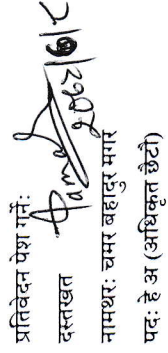 प्रतिवेदन पेश गर्नेः
दस्तखत
नामथरः चमर बहादुर मगर
पदः हे अ (अधिकृत छैटौं)